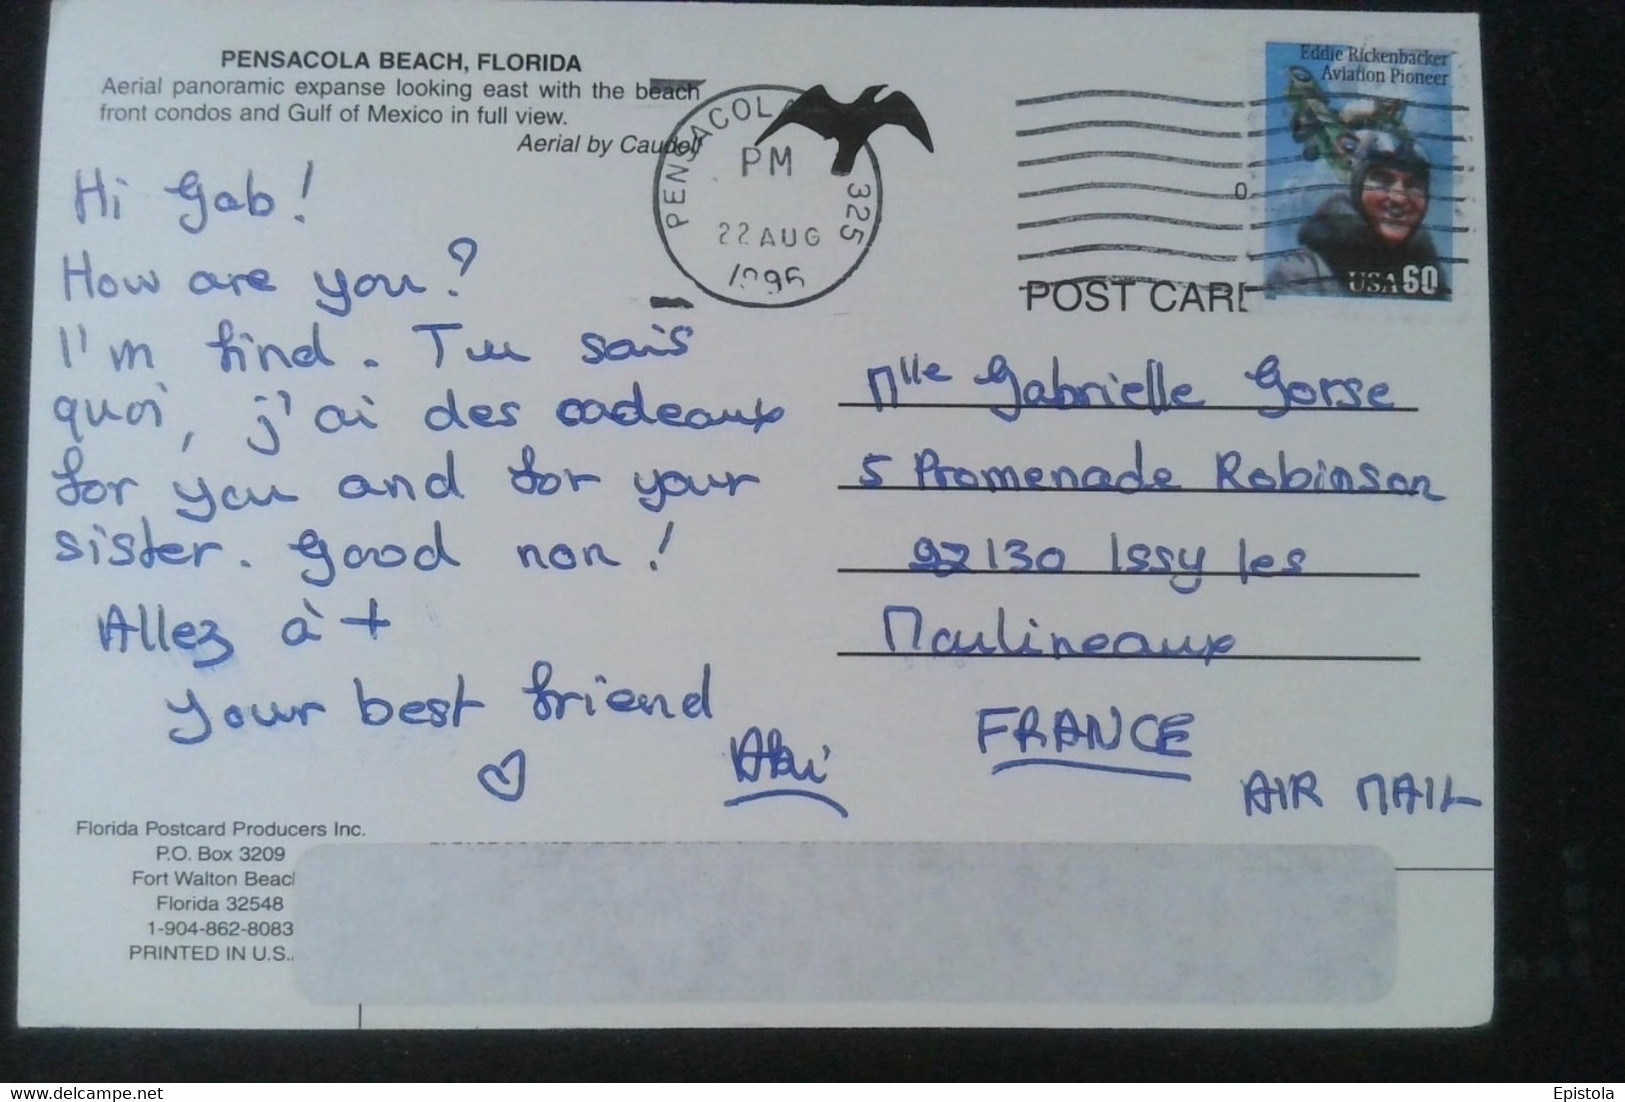 PENSACOLA BEACH, FLORIDA
Aerial panoramic expanse looking east with the beach
front condos and Gulf of Mexico in full view.
Aerial by Caudell
PENSACOLA 325
PM
22 AUG
1996
Eddie Rickenbacker
Aviation Pioneer
USA 60
POST CARD
Hi Gab!
How are you?
I'm find. Tu sais
quoi, j'ai des cadeaux
for you and for your
sister. Good non!
Allez à +
Your best friend
Mlle Gabrielle Gorse
5 Promenade Robinson
92130 Issy les
Moulineaux
FRANCE
AIR MAIL
Florida Postcard Producers Inc.
P.O. Box 3209
Fort Walton Beach
Florida 32548
1-904-862-8083
PRINTED IN U.S.
delcampe.net
Epistola